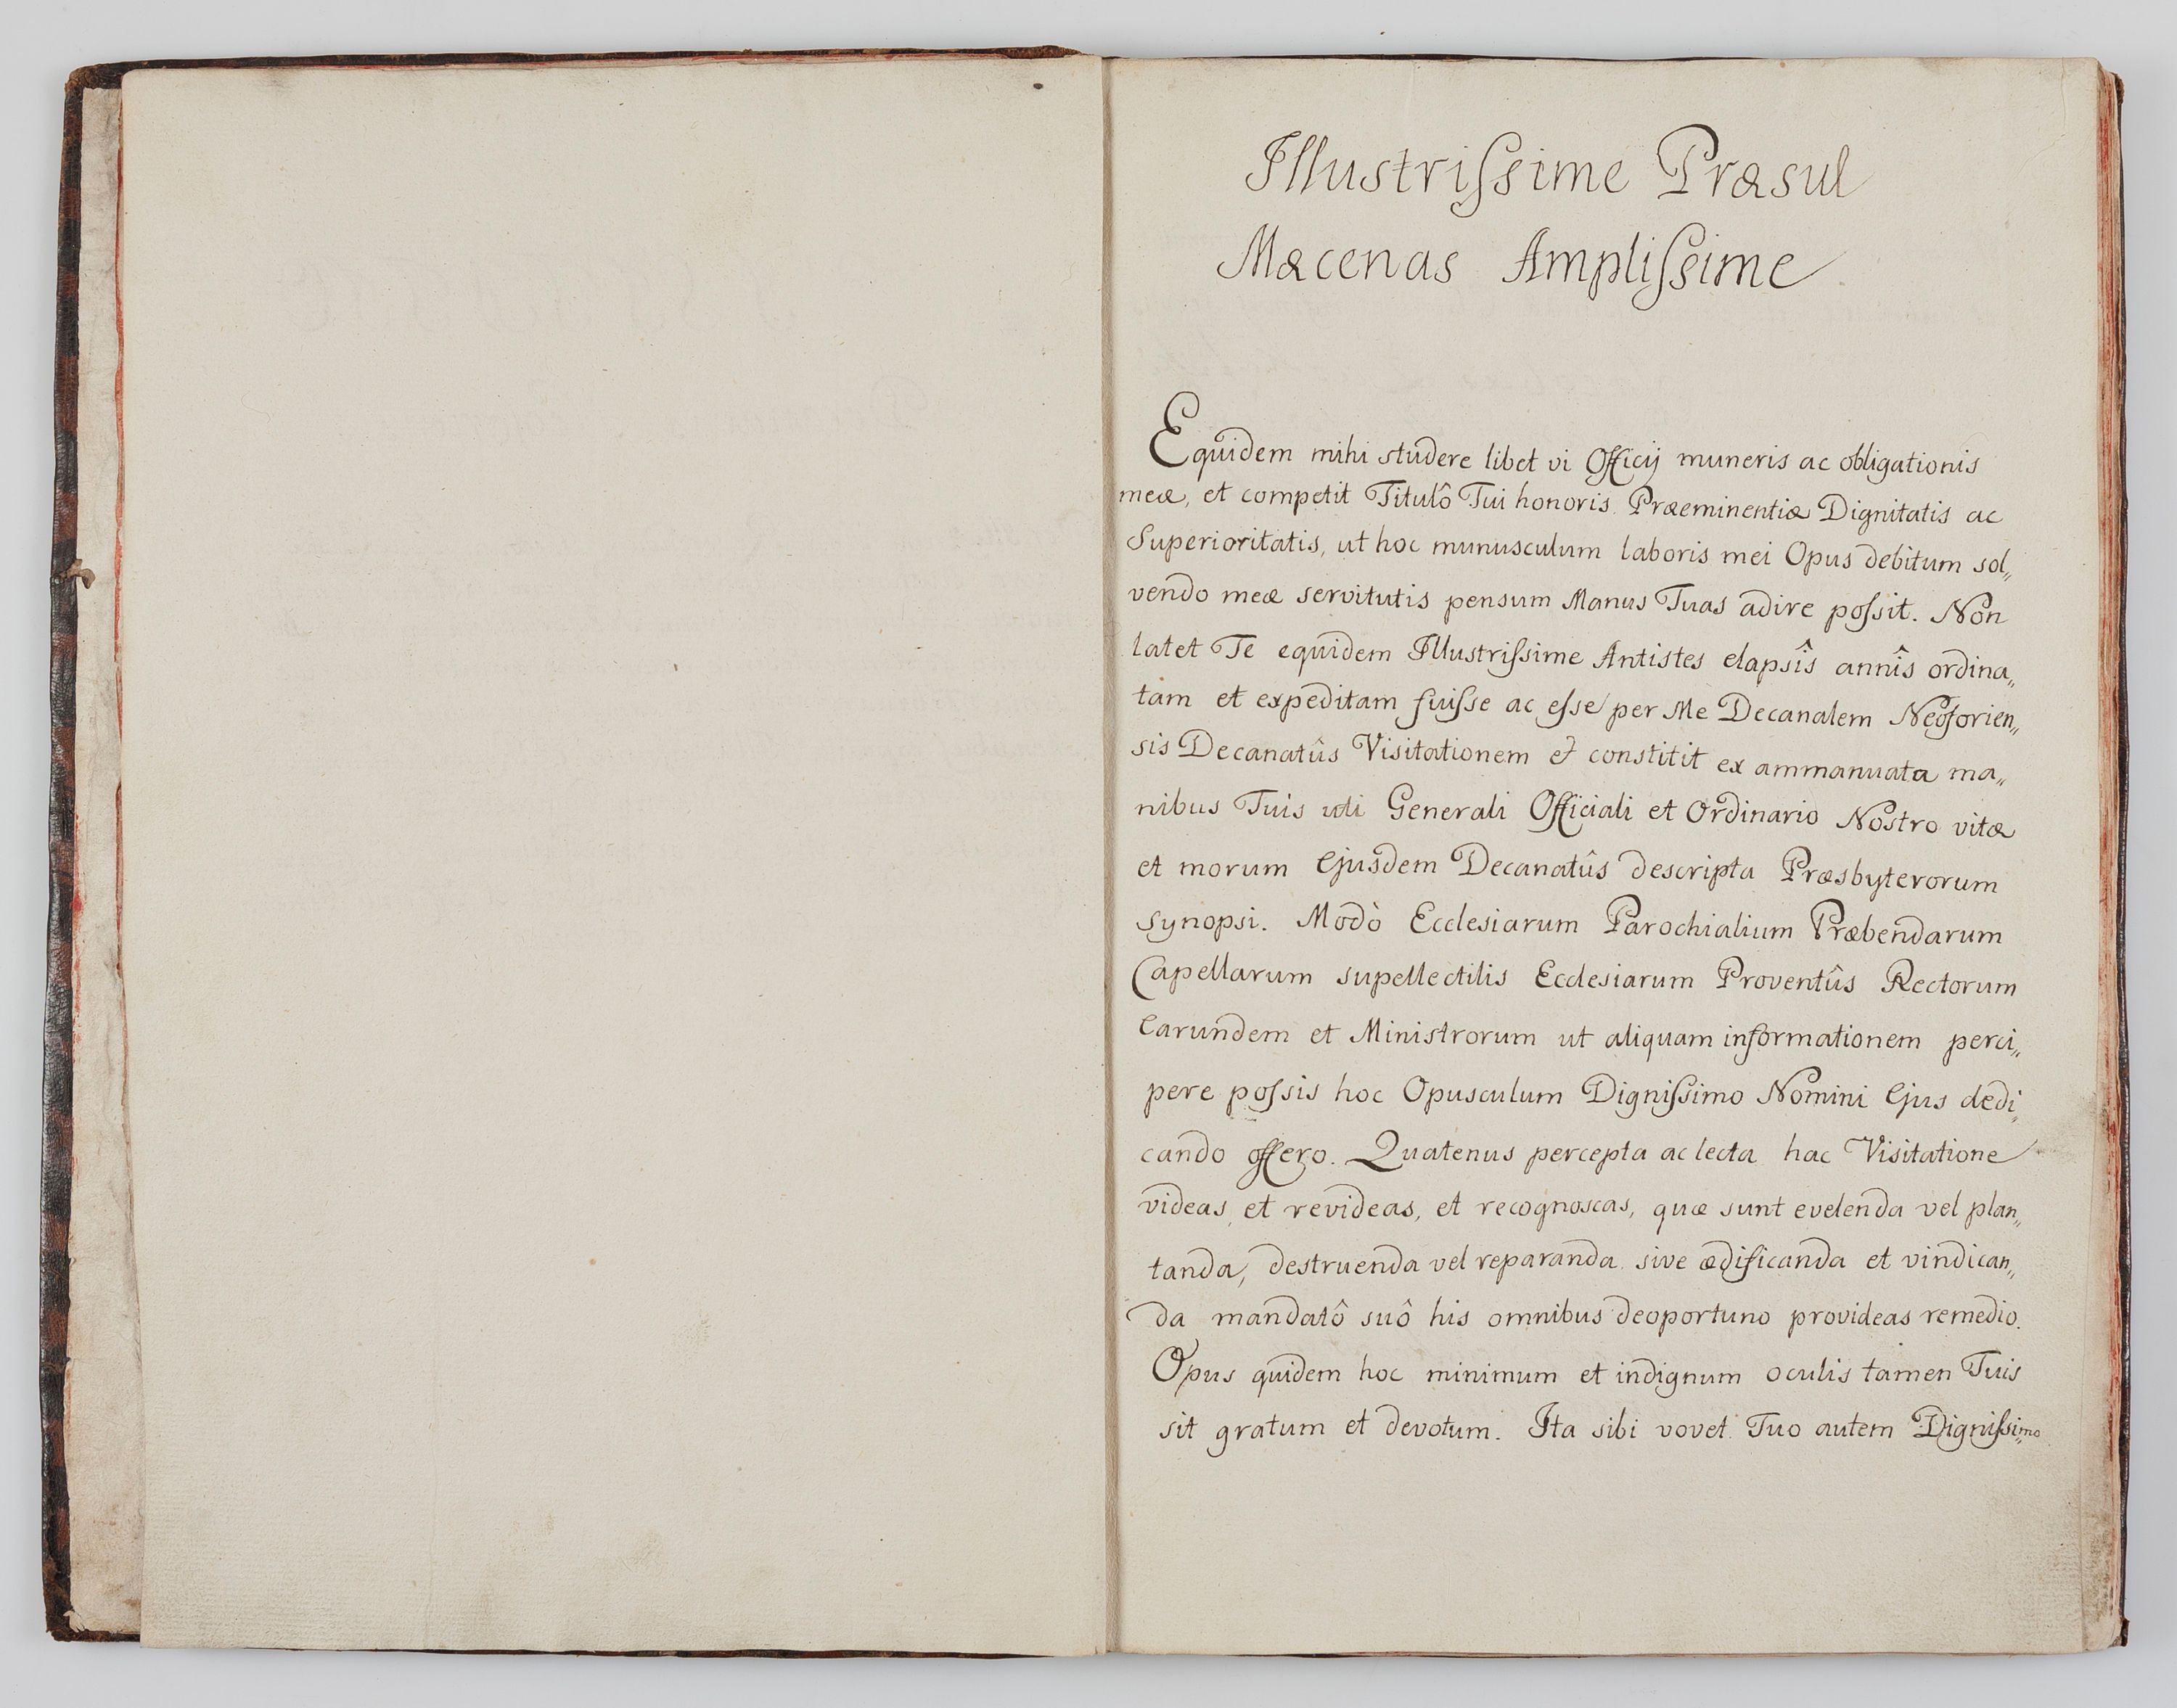 Illustrissime Præsul
Mæcenas Amplissime
Equidem mihi studere libet vi Officij muneris ac obligationis
meæ, et competit Titulô Tui honoris Præeminentiæ Dignitatis ac
Superioritatis, ut hoc munusculum laboris mei Opus debitum sol„
vendo meæ servitutis pensum Manus Tuas adire possit. Non
latet Te equidem Illustrissime Antistes elapsîs annîs ordina„
tam et expeditam fuisse ac esse per Me Decanalem Neoforien„
sis Decanatûs Visitationem & constitit ex ammanuata ma„
nibus Tuis uti Generali Officiali et Ordinario Nostro vitæ
et morum Ejusdem Decanatûs descripta Præsbyterorum
synopsi. Modò Ecclesiarum Parochialium Præbendarum
Capellarum supellectilis Ecclesiarum Proventûs Rectorum
Earundem et Ministrorum ut aliquam informationem perci„
pere possis hoc Opusculum Dignissimo Nomini Ejus dedi„
cando offero. Quatenus percepta ac lecta hac Visitatione
videas, et revideas, et recognoscas, quæ sunt evelenda vel plan„
tanda, destruenda vel reparanda sive ædificanda et vindican„
da mandatô suô his omnibus deoportuno provideas remedio.
Opus quidem hoc minimum et indignum oculis tamen Tuis
sit gratum et devotum. Ita sibi vovet. Tuo autem Dignissimo